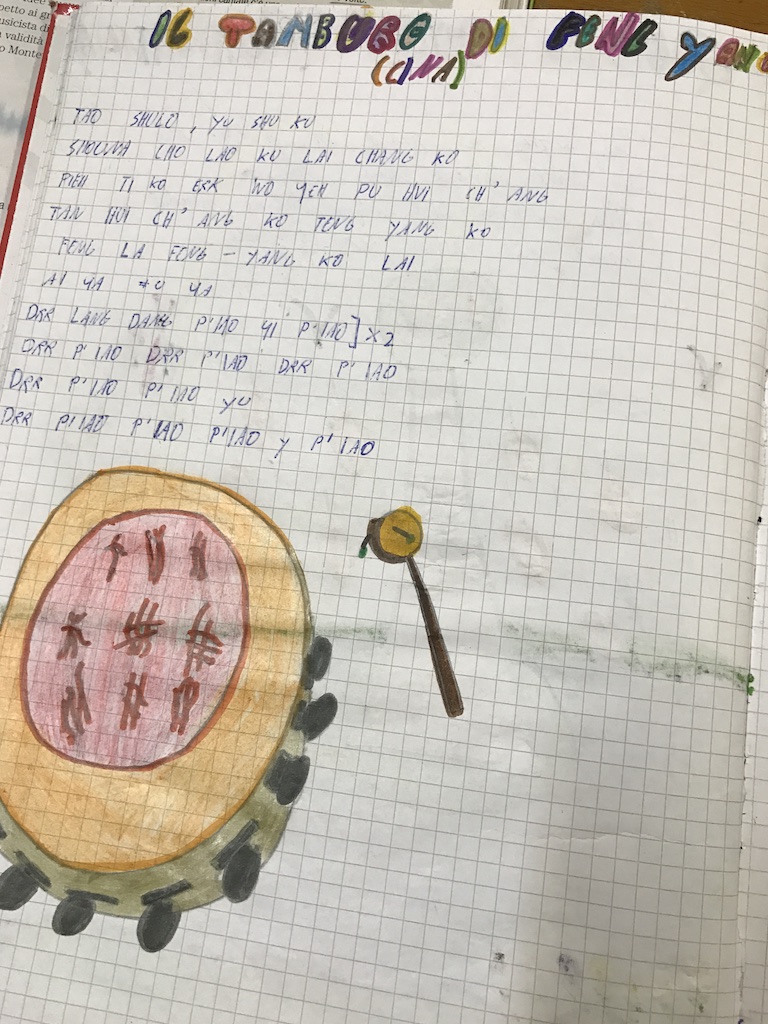 IL TAMBURO DI FENG YANG
(CINA)
TAO SHULO, YU SHU KU
SHOUNA CHO LAO KU LAI CHANG KO
PIEH TI KO ERR WO YEH PU HUI CH' ANG
TAN HUI CH' ANG KO TENG YANG KO
FENG LA FENG - YANG KO LAI
AI YA YA
DRR LANG DANG P'IAO YI P'IAO] X2
DRR P'IAO DRR P'IAO DRR P'IAO
DRR P'IAO P'IAO YU
DRR P'IAO P'IAO P'IAO Y P'IAO
petto ai
usicista d
validità
o Monte